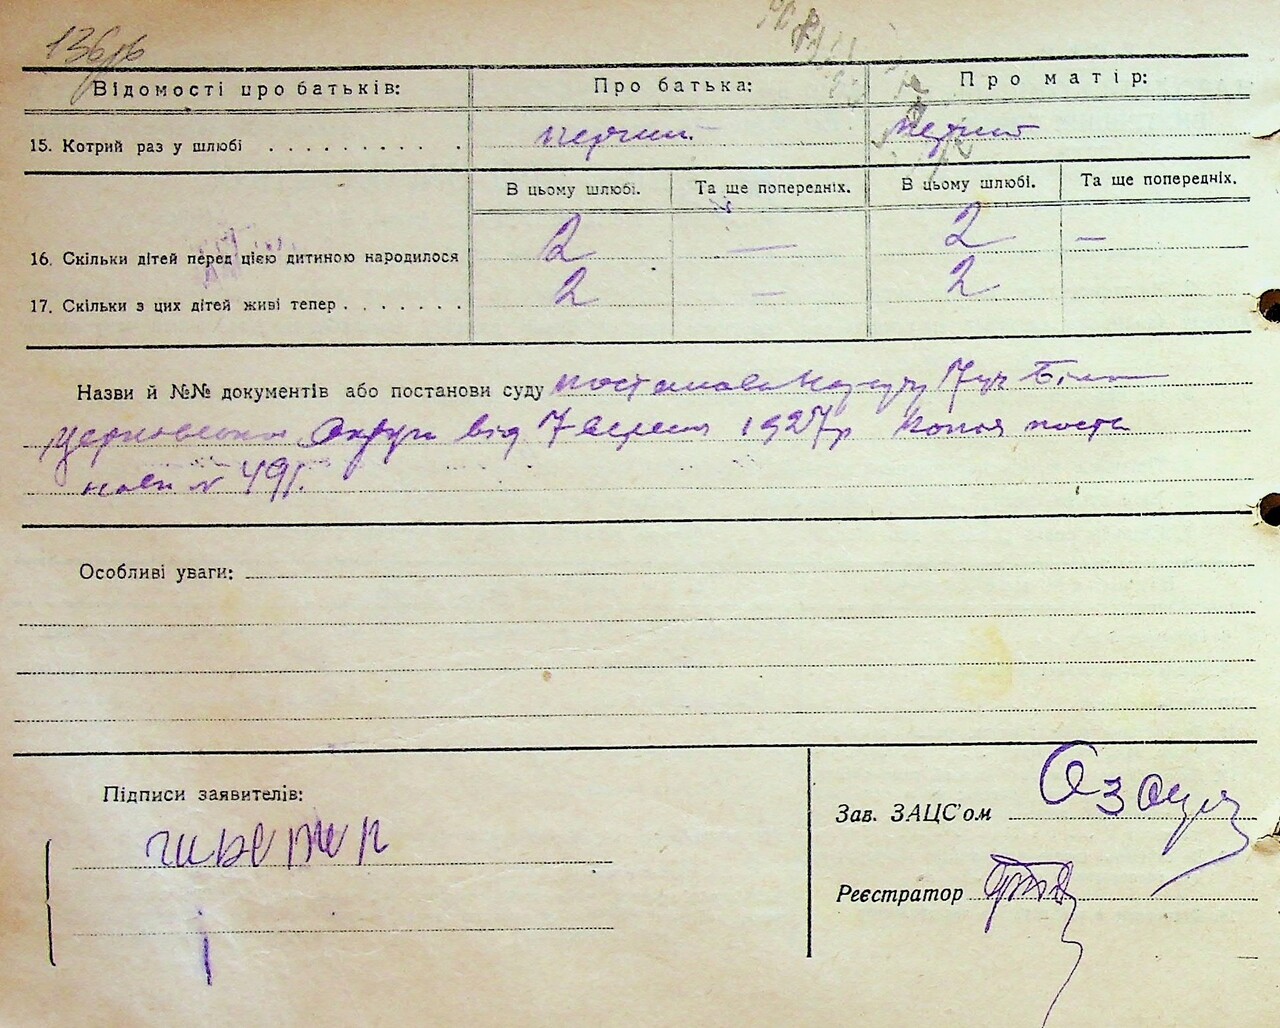 136
Відомості про батьків: Про батька: Про матір:
15. Котрий раз у шлюбі . . . . . . . . . . перший
В цьому шлюбі. Та ще попередніх. В цьому шлюбі. Та ще попередніх.
16. Скільки дітей перед цією дитиною народилося 2 — 2 —
17. Скільки з цих дітей живі тепер . . . . . . . 2 — 2
Назви й №№ документів або постанови суду постанова Нарсуду 7 уч Біло
церковської Округи від 7 вересня 1927 р Копія поста
нови № 491.
Особливі уваги:
Підписи заявителів:
Зав. ЗАЦС'ом
Реєстратор